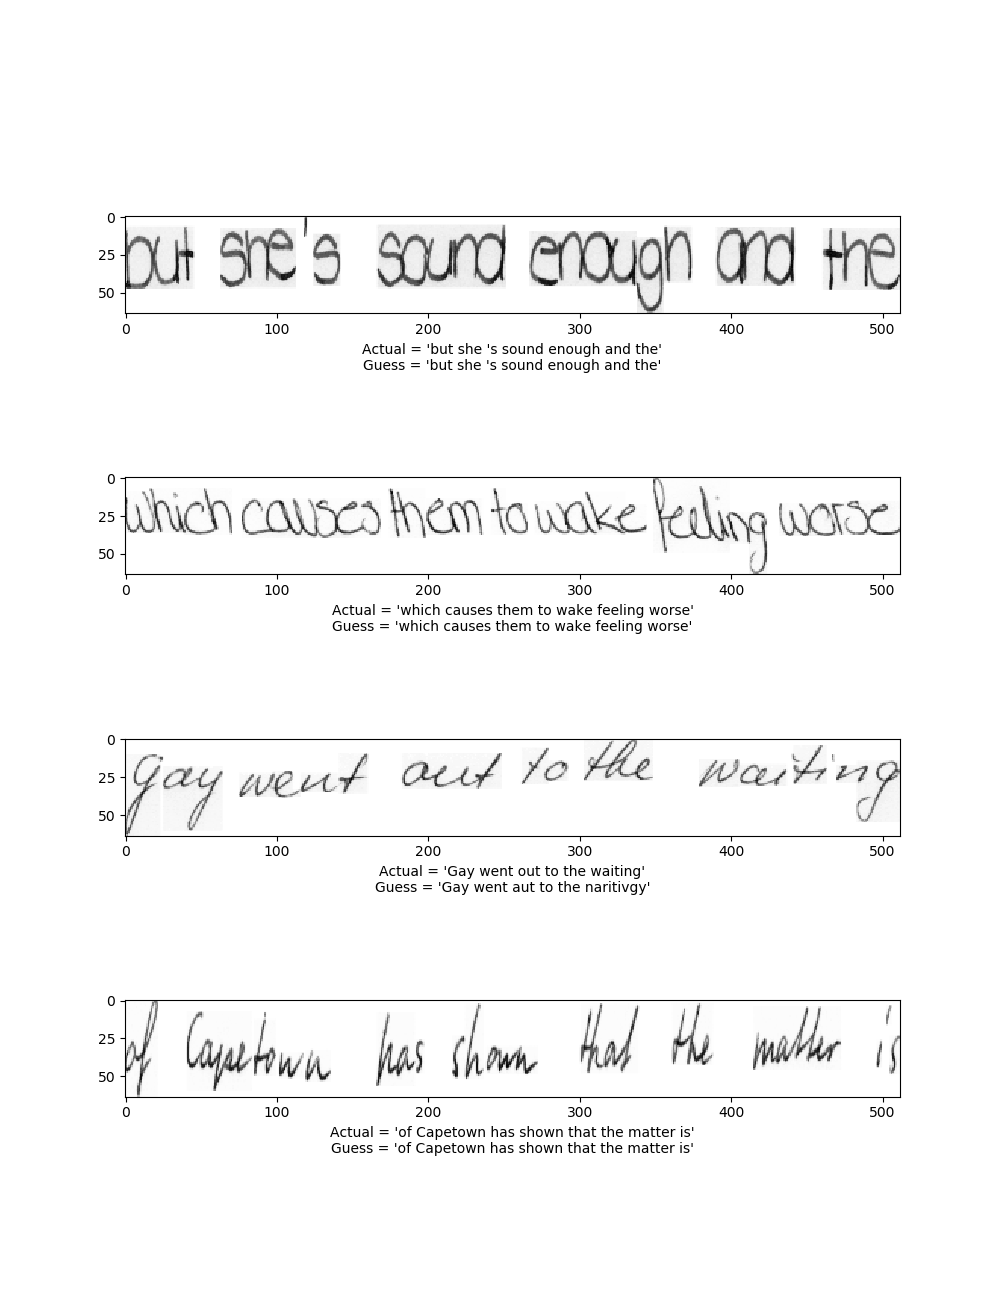 but she's sound enough and the
0
25
50
0 100 200 300 400 500
Actual = 'but she 's sound enough and the'
Guess = 'but she 's sound enough and the'
which causes them to wake feeling worse
0
25
50
0 100 200 300 400 500
Actual = 'which causes them to wake feeling worse'
Guess = 'which causes them to wake feeling worse'
Gay went out to the waiting
0
25
50
0 100 200 300 400 500
Actual = 'Gay went out to the waiting'
Guess = 'Gay went aut to the naritivgy'
of Capetown has shown that the matter is
0
25
50
0 100 200 300 400 500
Actual = 'of Capetown has shown that the matter is'
Guess = 'of Capetown has shown that the matter is'